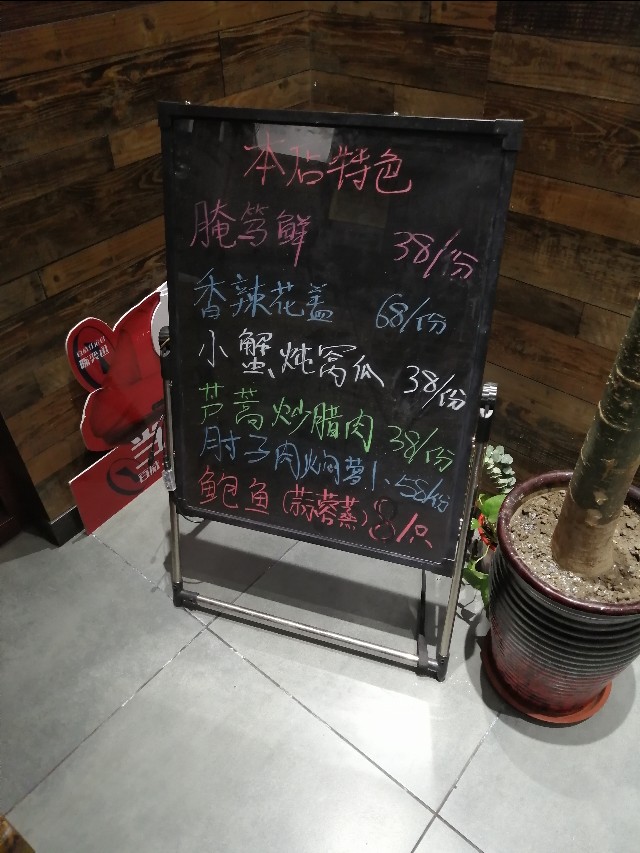 本店特色
腌笃鲜 38/份
香辣花盖 68/份
小蟹炖窝瓜 38/份
芦蒿炒腊肉 38/份
肘子肉焖萝卜 58/份
鲍鱼(蒜蓉蒸) 8/只